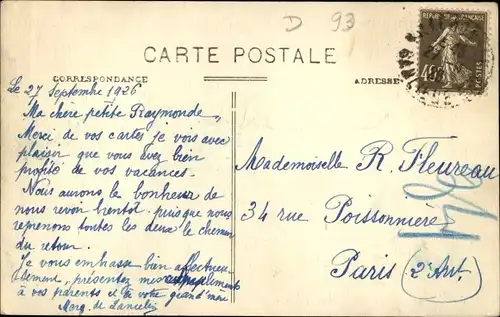 D 93
CARTE POSTALE
CORRESPONDANCE
ADRESSE
REPUBLIQUE FRANÇAISE
40c
POSTES
Le 27 Septembre 1926
Ma chère petite Raymonde,
Merci de vos cartes je vois avec
plaisir que vous avez bien
profité de vos vacances.
Nous aurons le bonheur de
nous revoir bientôt puisque nous
reprenons toutes les deux le chemin
du retour.
Je vous embrasse bien affectueu-
sement, présentez mes compliments
à vos parents et à votre grand'mère
Mademoiselle R. Fleureau
34 rue Poissonnière
Paris (2e Arrt.)